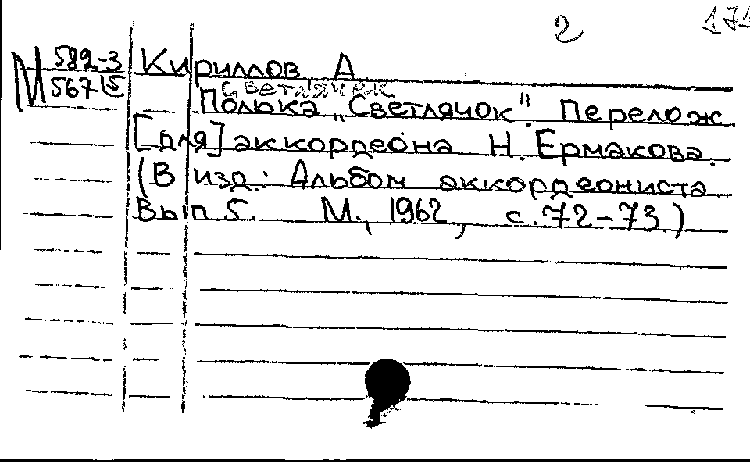 2 171
М 582-3 Кириллов А
567 15 Светлячек
Полька „Светлячок". Перелож
[для] аккордеона Н. Ермакова.
(В изд.: Альбом аккордеониста
Вып 5. М., 1962, с. 72-73)